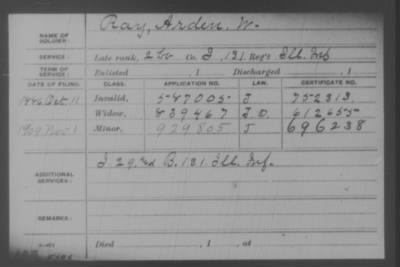 NAME OF SOLDIER: Ray, Arden, W.
SERVICE: Late rank, 2 Co. I, 131 Reg't Ill. Inf
TERM OF SERVICE: Enlisted , 1 Discharged , 1
DATE OF FILING. CLASS. APPLICATION NO. LAW. CERTIFICATE NO.
Oct 11 Invalid, 587005 J 752313.
Widow, 839467 J.O. 612655
Nov 1 Minor, 929805 J 696238
ADDITIONAL SERVICES: I 29. B. 131. Ill. Inf.
REMARKS:
Died , 1 , at